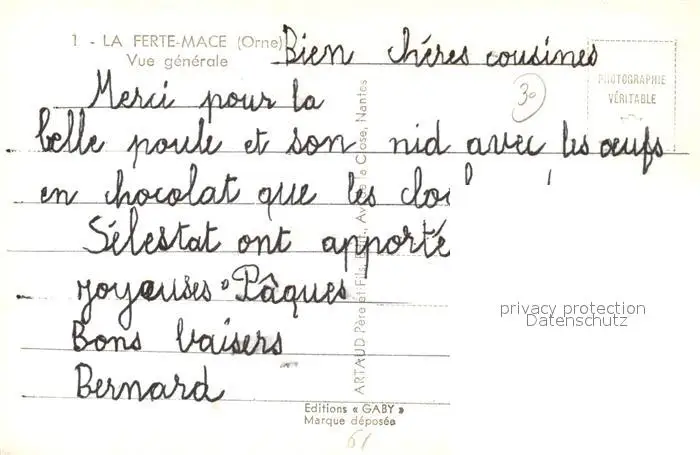 1 - LA FERTE-MACE (Orne)
Vue générale
Bien chéres cousines
PHOTOGRAPHIE
VÉRITABLE
30
Merci pour la
belle poule et son nid avec les œufs
en chocolat que les
Sélestat ont apporté
joyeuses Pâques
Bons baisers
Bernard
ARTAUD Père et Fils, Close, Nantes
privacy protection
Datenschutz
Editions « GABY »
Marque déposée
61